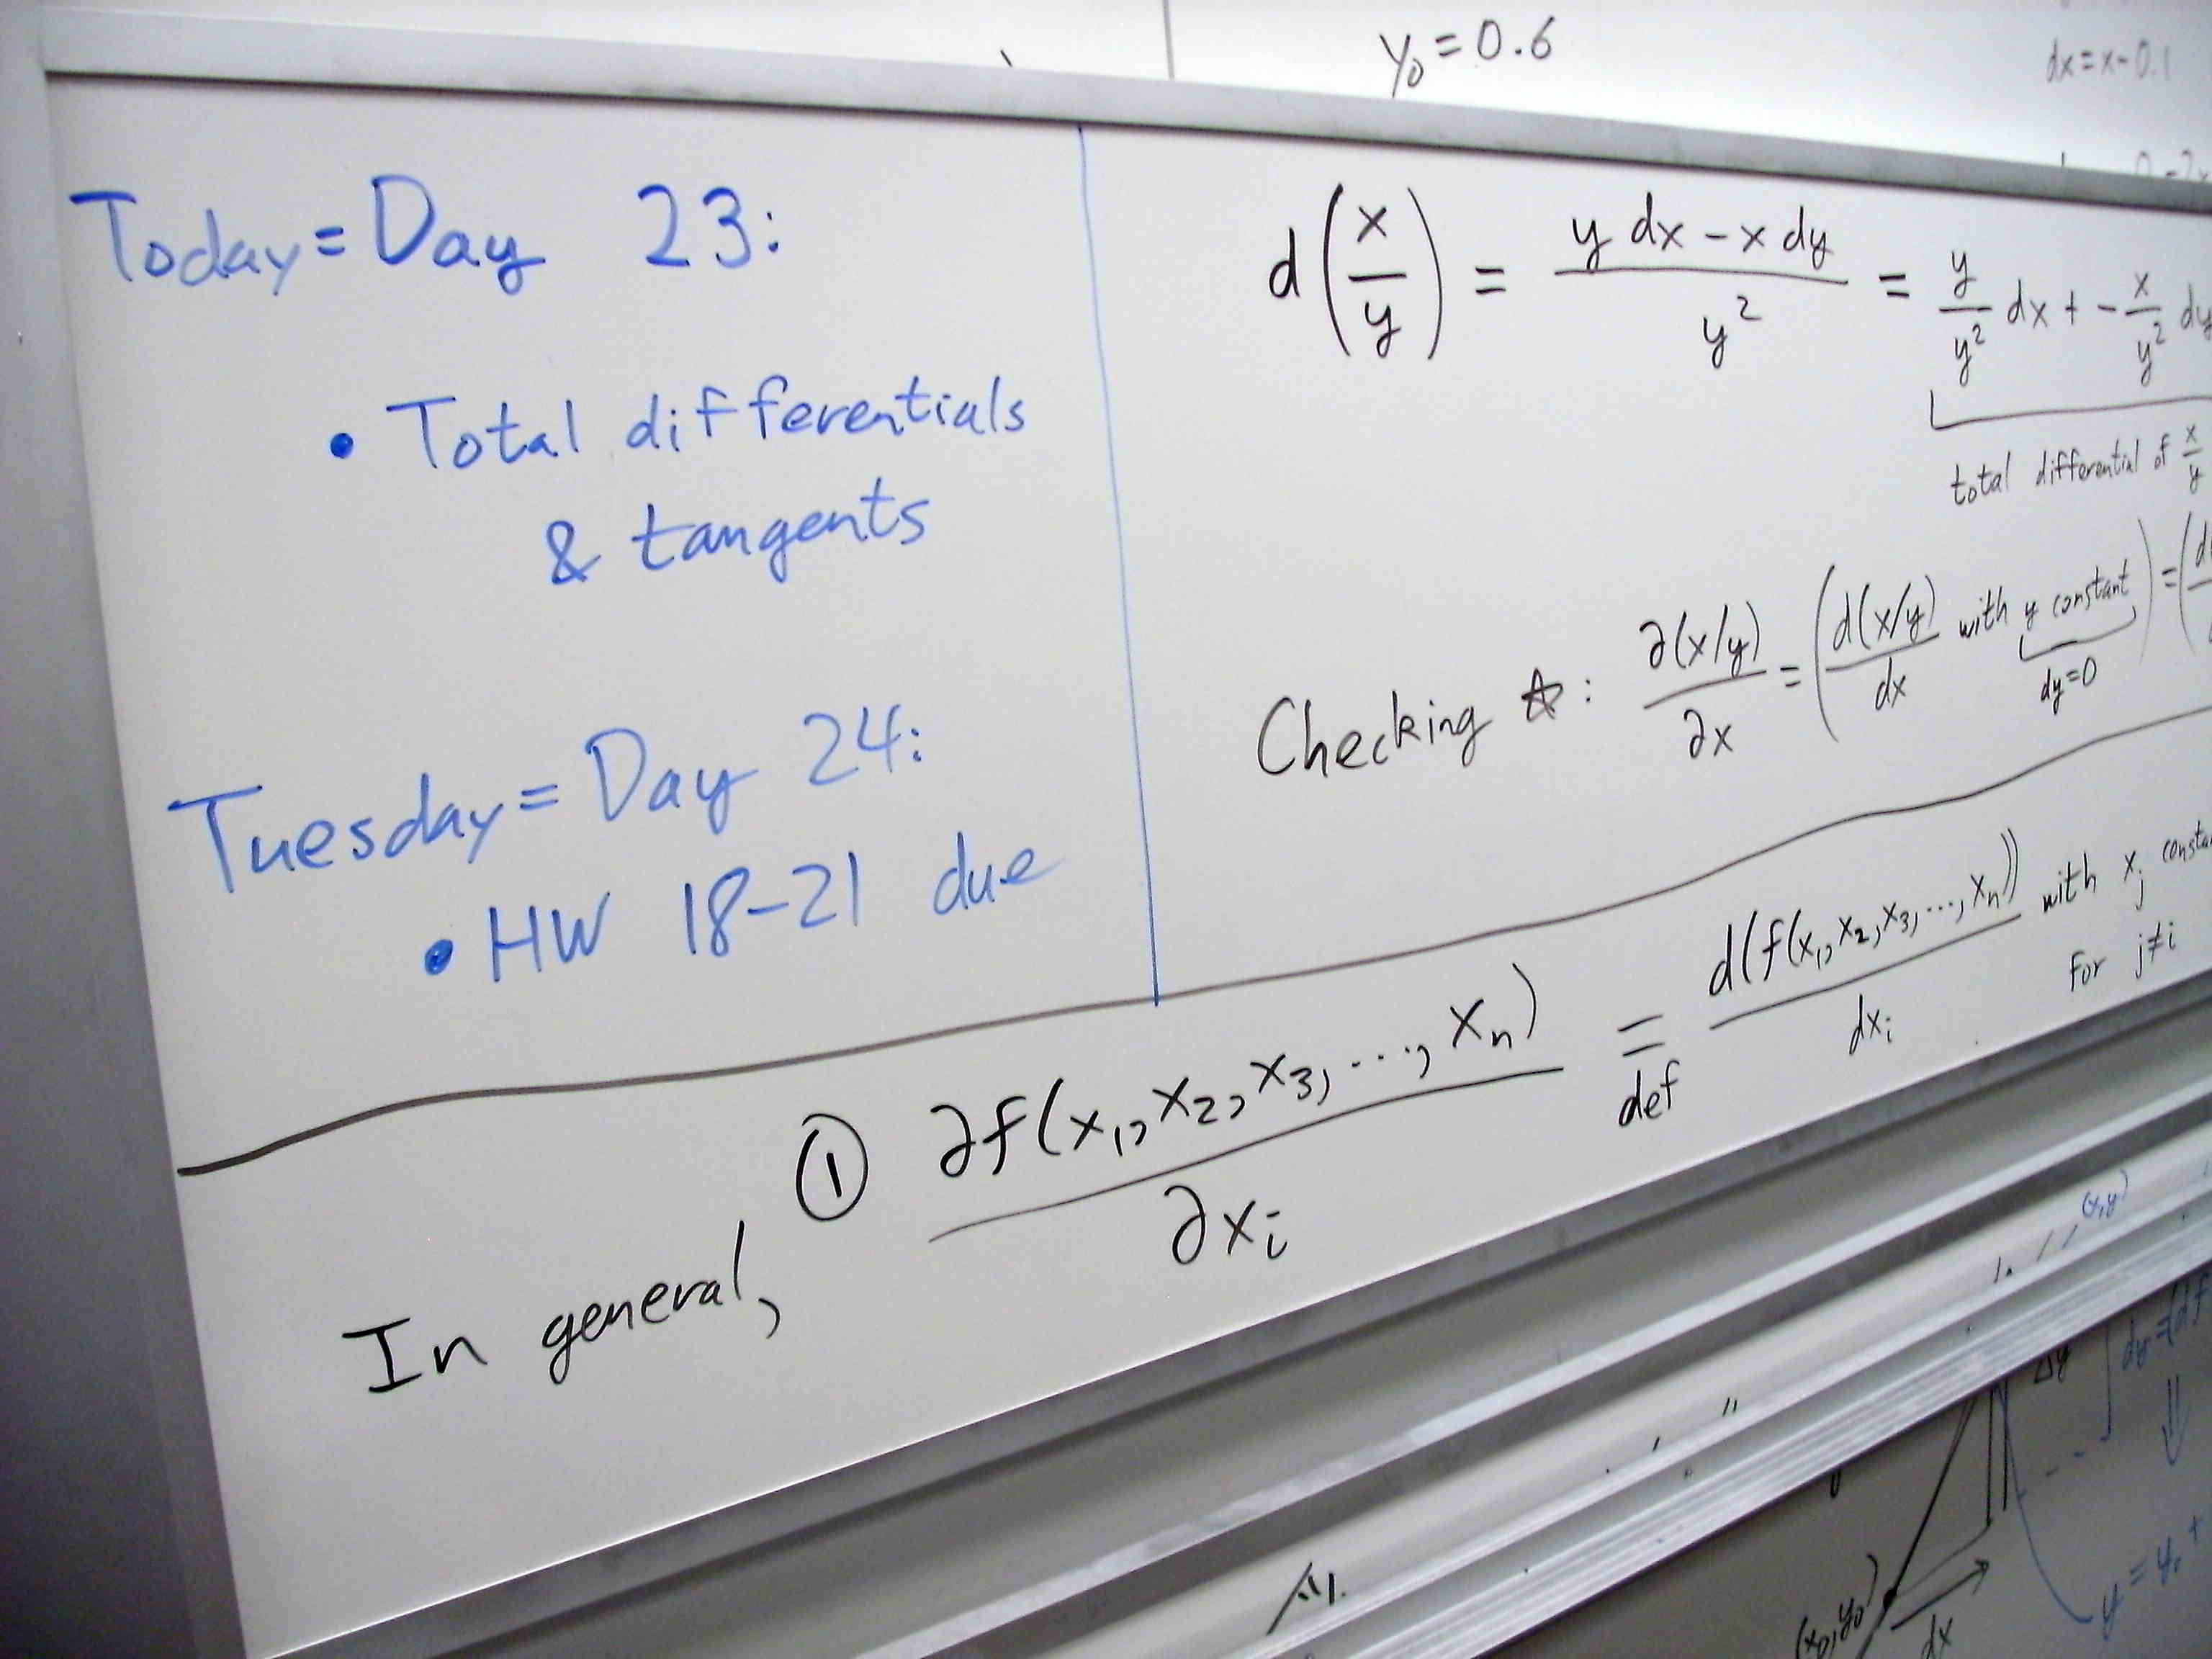 y₀ = 0.6
dx = x - 0.1
Today = Day 23:
• Total differentials
& tangents
Tuesday = Day 24:
• HW 18-21 due
d(x/y) = (y dx - x dy)/y² = y/y² dx + - x/y² dy
total differential of x/y
Checking ☆: ∂(x/y)/∂x = (d(x/y)/dx with y constant) =
dy=0
In general, ① ∂f(x₁, x₂, x₃, ..., xₙ)/∂xᵢ = d(f(x₁, x₂, x₃, ..., xₙ))/dxᵢ with xⱼ
def
for j≠i
(x,y)
Δy
(x₀,y₀)
dx